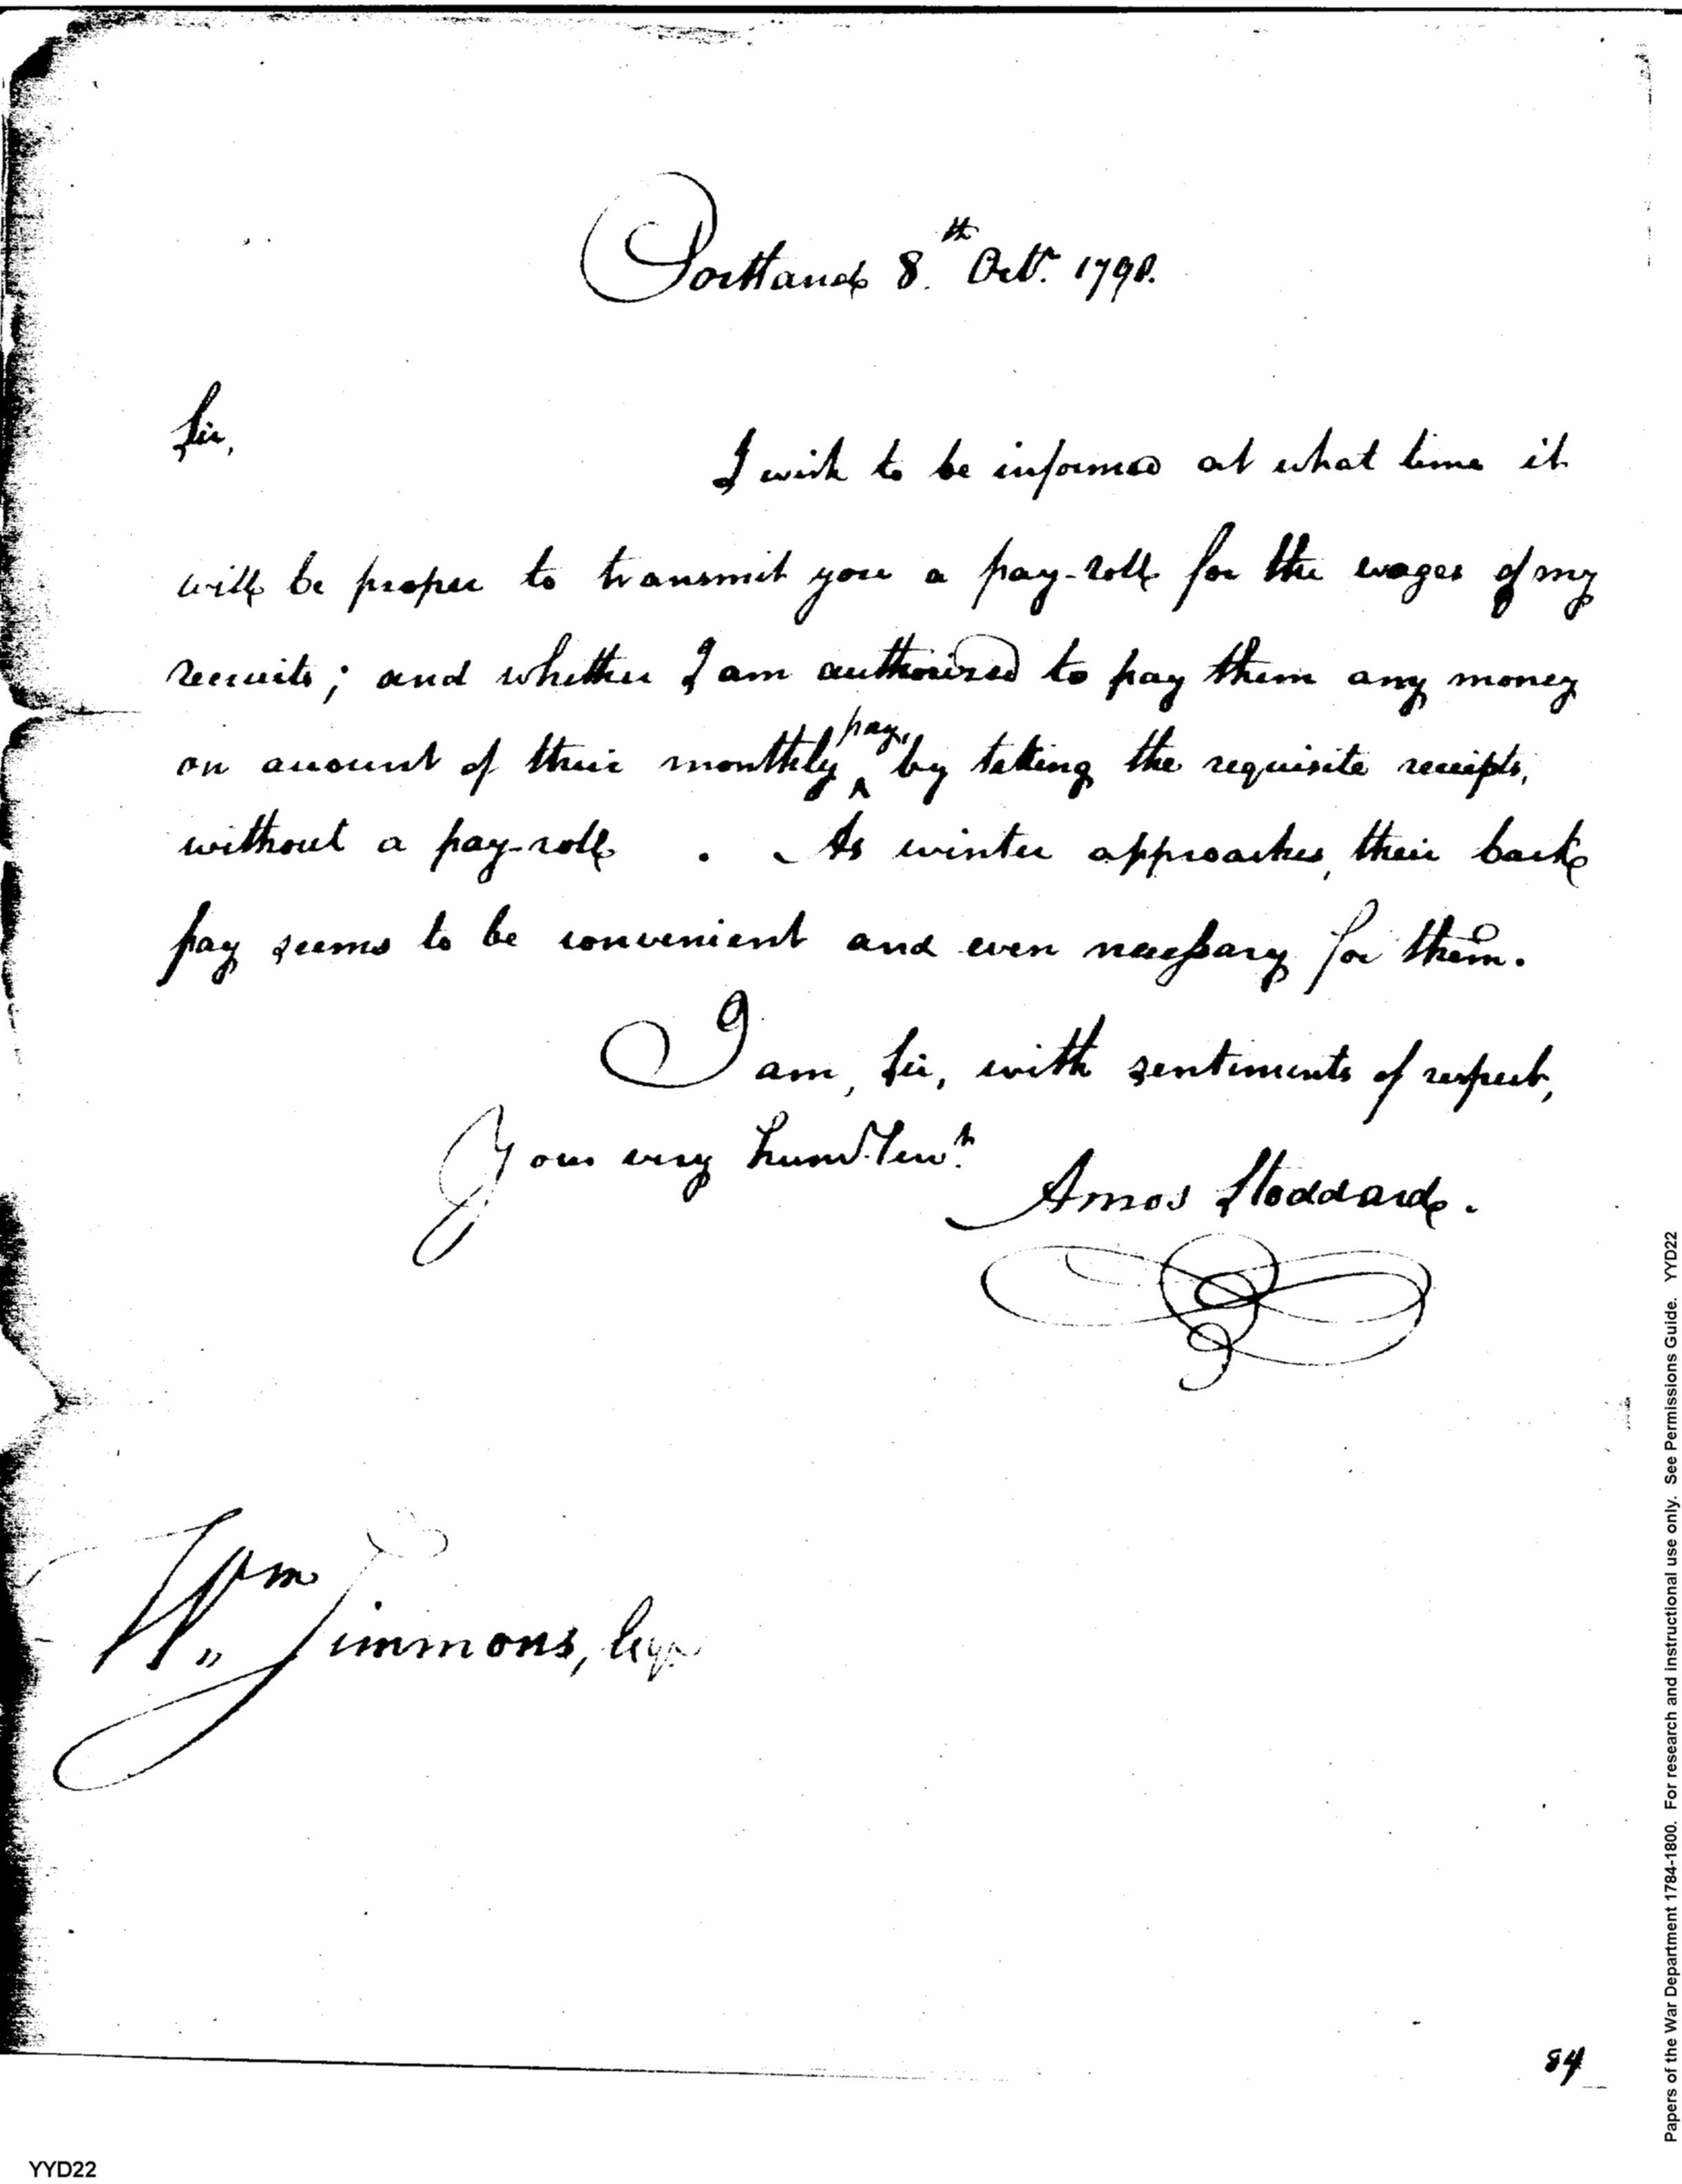 Portland 8.th Octr. 1798.
Sir,
I wish to be informed at what time it
will be proper to transmit you a pay-roll for the wages of my
recruits; and whether I am authorised to pay them any money
on account of their monthly pay, by taking the requisite receipts,
without a pay-roll. As winter approaches, their back
pay seems to be convenient and even necessary for them.
I am, Sir, with sentiments of respect,
Your very humb. Servt.
Amos Stoddard.
Wm Simmons, Esqr
84
YYD22
Papers of the War Department 1784-1800. For research and instructional use only. See Permissions Guide. YYD22